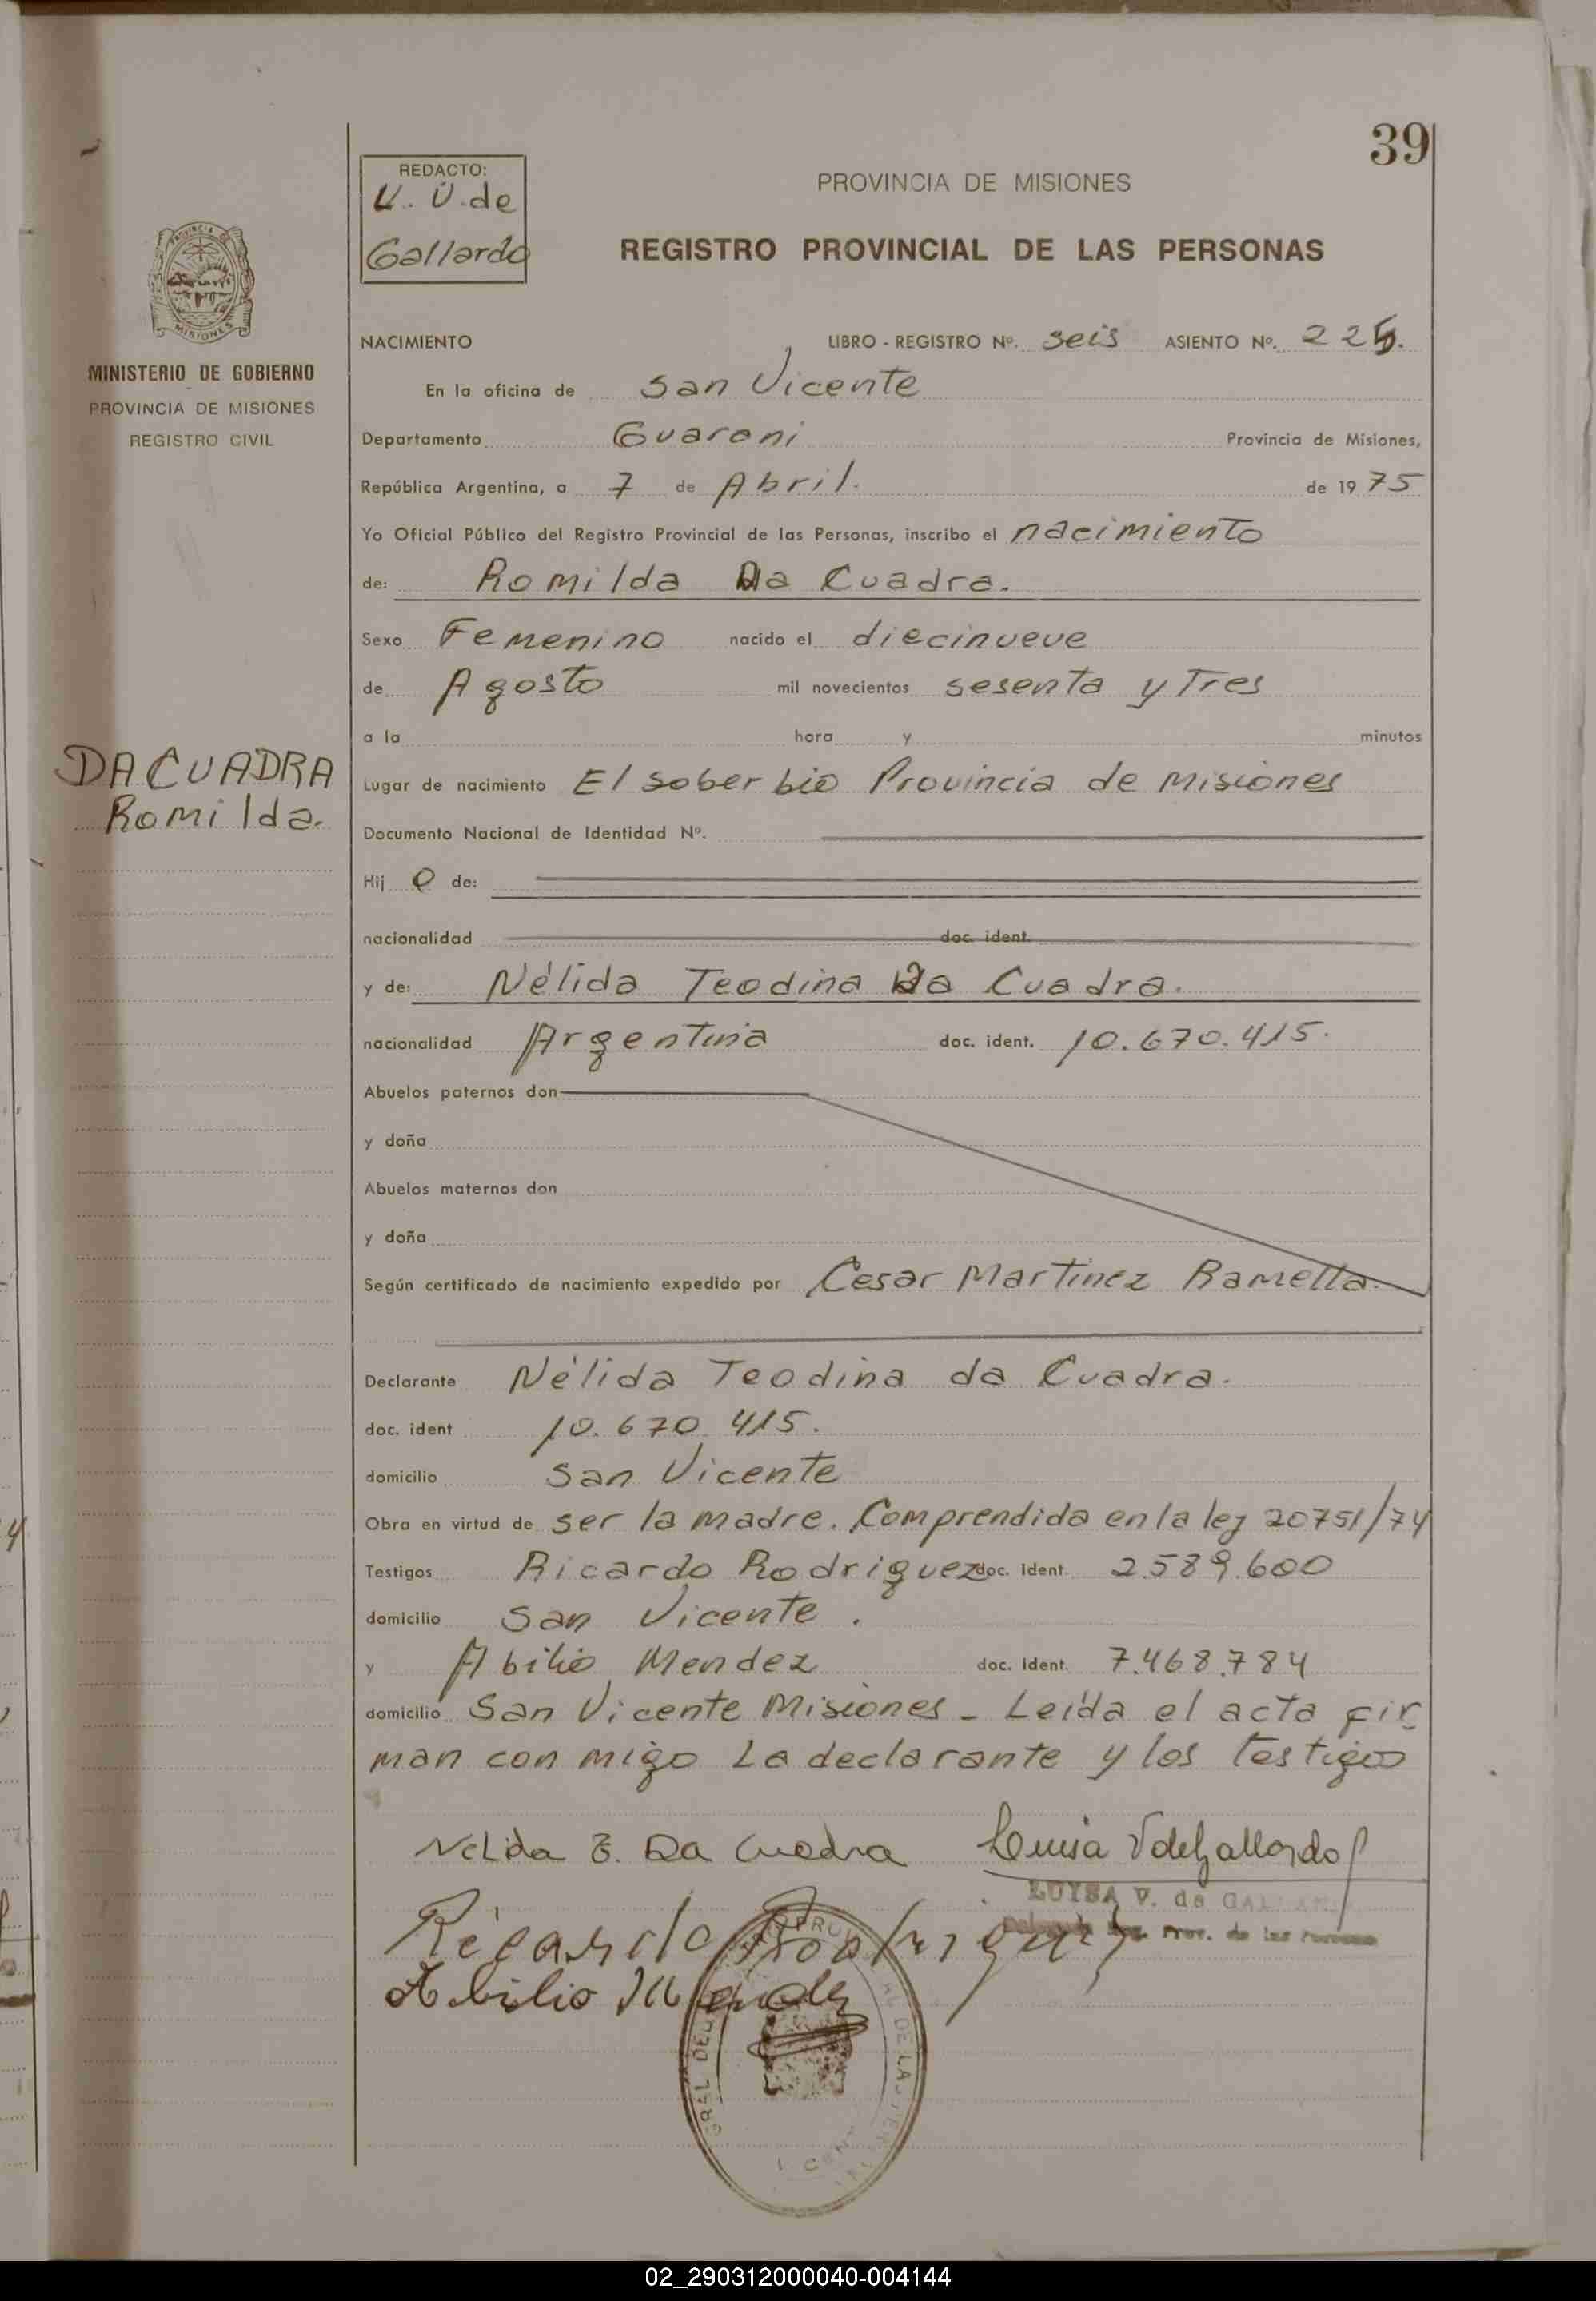 39
REDACTO:
L. V. de
Gallardo
PROVINCIA DE MISIONES
REGISTRO PROVINCIAL DE LAS PERSONAS
PROVINCIA DE
MISIONES
MINISTERIO DE GOBIERNO
PROVINCIA DE MISIONES
REGISTRO CIVIL
DA CUADRA
Romilda.
NACIMIENTO LIBRO - REGISTRO Nº. seis ASIENTO Nº. 225.
En la oficina de San Vicente
Departamento Guarani Provincia de Misiones,
República Argentina, a 7 de Abril. de 1975
Yo Oficial Público del Registro Provincial de las Personas, inscribo el nacimiento
de: Romilda Da Cuadra.
Sexo Femenino nacido el diecinueve
de Agosto mil novecientos sesenta y Tres
a la hora y minutos
Lugar de nacimiento El soberbio Provincia de Misiones
Documento Nacional de Identidad Nº.
Hij de:
nacionalidad doc. ident.
y de: Nélida Teodina Da Cuadra.
nacionalidad Argentina doc. ident. 10.670.415.
Abuelos paternos don
y doña
Abuelos maternos don
y doña
Según certificado de nacimiento expedido por Cesar Martinez Ramella.
Declarante Nélida Teodina da Cuadra.
doc. ident 10.670.415.
domicilio San Vicente
Obra en virtud de ser la madre. Comprendida en la ley 20751/74
Testigos Ricardo Rodriguez doc. Ident. 2.589.600
domicilio San Vicente.
y Abilio Mendez doc. Ident. 7.468.784
domicilio San Vicente Misiones - Leída el acta fir
man con migo La declarante y los testigos
Nelida T. Da Cuadra Luisa V de Gallardo
LUISA V. de GALLARDO
Prov. de las Personas
Ricardo Rodriguez
Abilio Mendez
02_290312000040-004144